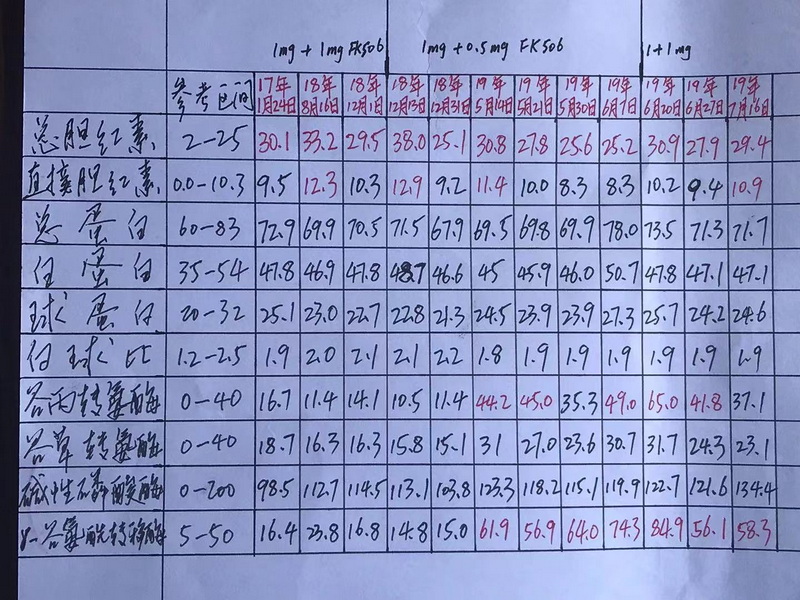 1mg + 1mg FK506 1mg + 0.5mg FK506 1+1mg
参考区间 17年1月24日 18年8月16日 18年12月1日 18年12月13日 18年12月31日 19年5月14日 19年5月21日 19年5月30日 19年6月7日 19年6月20日 19年6月27日 19年7月16日
总胆红素 2-25 30.1 33.2 29.5 38.0 25.1 30.8 27.8 25.6 25.2 30.9 27.9 29.4
直接胆红素 0.0-10.3 9.5 12.3 10.3 12.9 9.2 11.4 10.0 8.3 8.3 10.2 9.4 10.9
总蛋白 60-83 72.9 69.9 70.5 71.5 67.9 69.5 69.8 69.9 78.0 73.5 71.3 71.7
白蛋白 35-54 47.8 46.9 47.8 48.7 46.6 45 45.9 46.0 50.7 47.8 47.1 47.1
球蛋白 20-32 25.1 23.0 22.7 22.8 21.3 24.5 23.9 23.9 27.3 25.7 24.2 24.6
白球比 1.2-2.5 1.9 2.0 2.1 2.1 2.2 1.8 1.9 1.9 1.9 1.9 1.9 1.9
谷丙转氨酶 0-40 16.7 11.4 14.1 10.5 11.4 44.2 45.0 35.3 49.0 65.0 41.8 37.1
谷草转氨酶 0-40 18.7 16.3 16.3 15.8 15.1 31 27.0 23.6 30.7 31.7 24.3 23.1
碱性磷酸酶 0-200 98.5 112.7 114.5 113.1 103.8 123.3 118.2 115.1 119.9 122.7 121.6 134.4
γ-谷氨酰转移酶 5-50 16.4 23.8 16.8 14.8 15.0 61.9 56.9 64.0 74.3 84.9 56.1 58.3